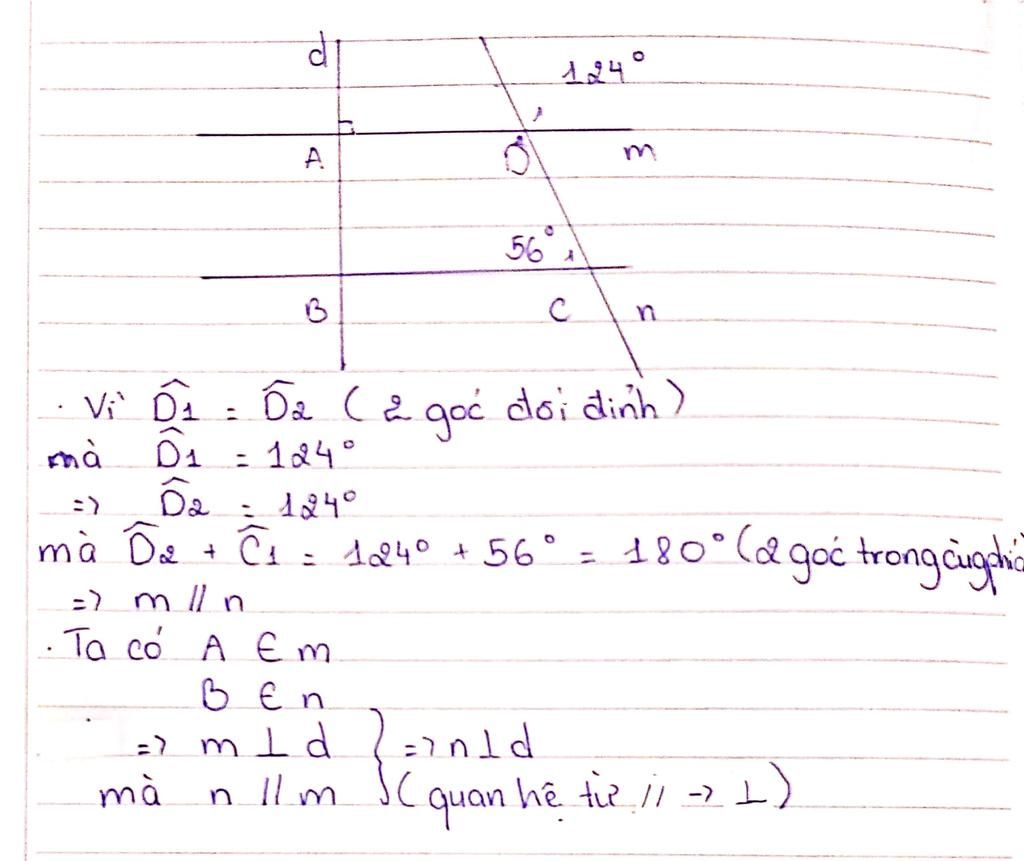 d
124°
1
A
D
m
56°
1
B
C
n
. Vì D̂1 = D̂2 ( 2 goć đoi đỉnh )
mà D̂1 = 124°
=> D̂2 = 124°
mà D̂2 + Ĉ1 = 124° + 56° = 180° (2 goć trong cùg phiá
=> m // n
. Ta có A ∈ m
B ∈ n
=> m ⊥ d } => n ⊥ d
mà n // m (quan hệ từ // -> ⊥ )